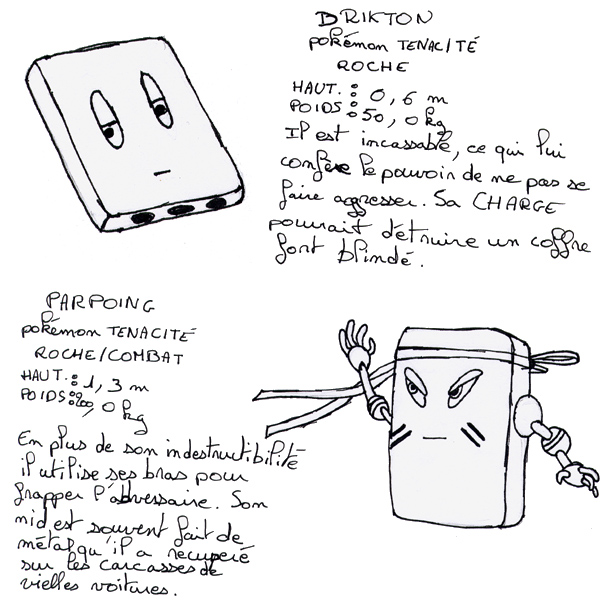 BRIKTON
pokémon TENACITÉ
ROCHE
HAUT. : 0,6 m
POIDS : 50,0 kg
Il est incassable, ce qui lui
confère le pouvoir de ne pas se
faire aggresser. Sa CHARGE
pourrait détruire un coffre
fort blindé.
PARPOING
pokémon TENACITÉ
ROCHE/COMBAT
HAUT. : 1,3 m
POIDS : 200,0 kg
En plus de son indestructibilité
il utilise ses bras pour
frapper l'adversaire. Son
nid est souvent fait de
métal qu'il a recuperé
sur les carcasses de
vielles voitures.